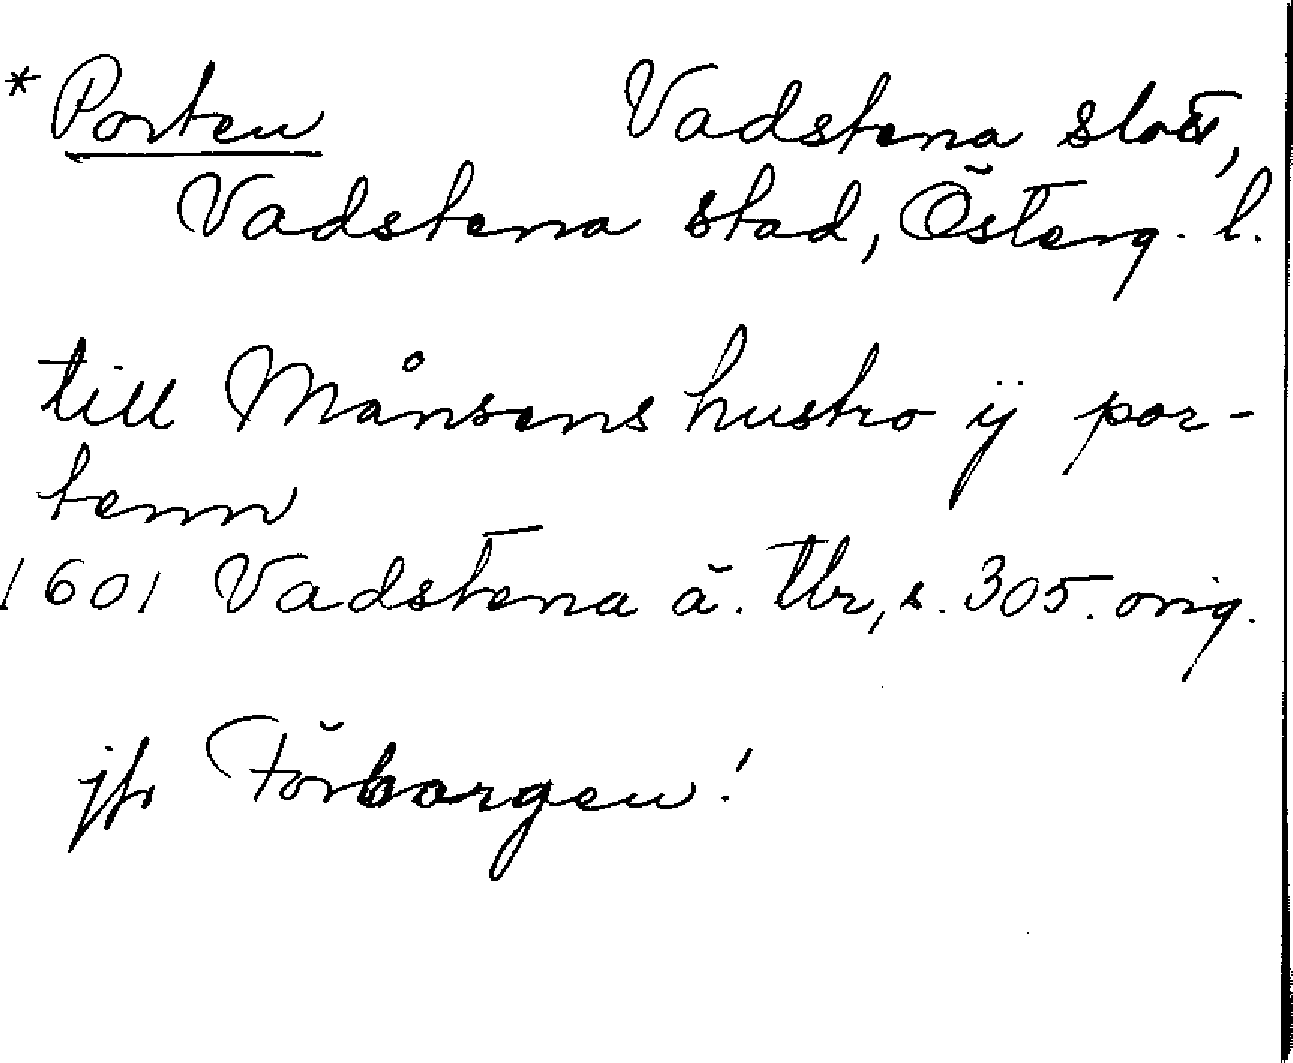 * Porten Vadstena slott,
Vadstena stad, Österg. l.
till Månsens hustro ÿ por-
tenn
1601 Vadstena ä. Tbr, s. 305. orig.
jfr Förborgen!